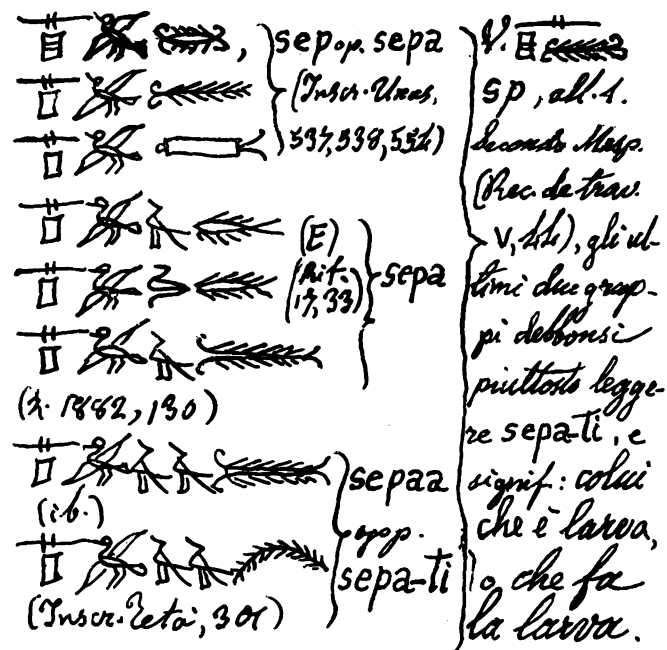 , sep op. sepa
(Inscr. Unas,
537, 538, 554)
(E)
(Rit.
17, 33)
sepa
(Z. 1882, 130)
sepaa
(ib.)
opp.
sepa-ti
(Inscr. Teta, 301)
V.
sp, all. 1.
Secondo Masp.
(Rec. de trav.
V, 44), gli ul-
timi due grup-
pi debbonsi
piuttosto legge-
re sepa-ti, e
signif: colui
che è larva,
o, che fa
la larva.